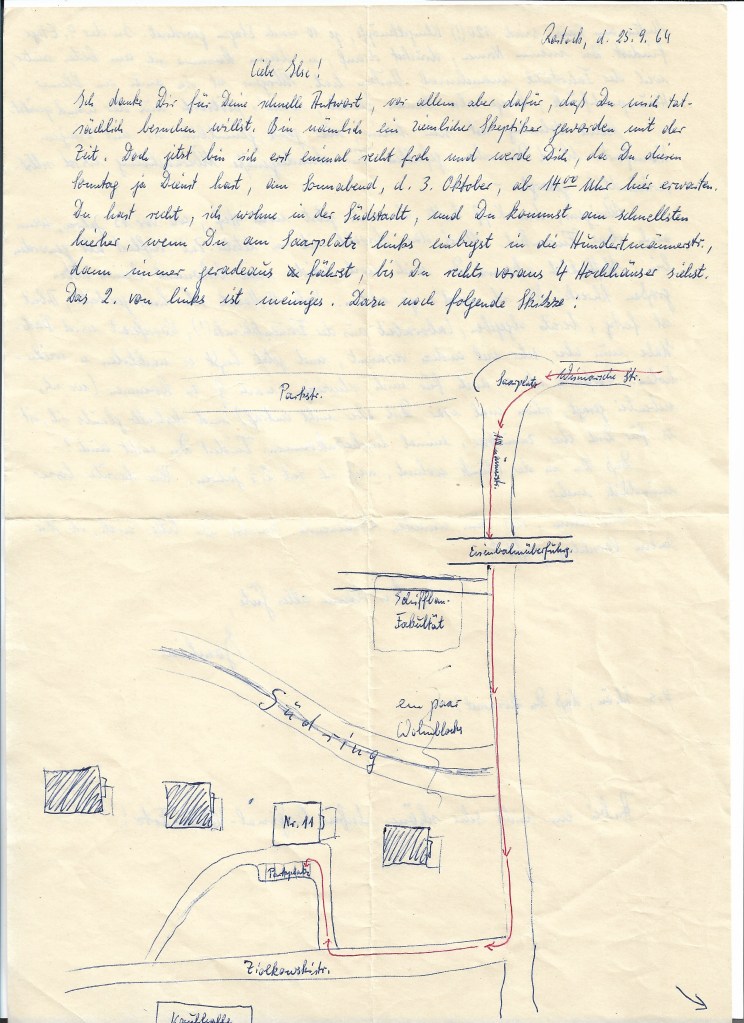 Rostock, d. 25.9.64
Liebe Ilse!
Ich danke Dir für Deine schnelle Antwort, vor allem aber dafür, daß Du mich tat-
sächlich besuchen willst. Bin nämlich ein ziemlicher Skeptiker geworden mit der
Zeit. Doch jetzt bin ich erst einmal recht froh und werde Dich, da Du diesen
Sonntag ja Dienst hast, am Sonnabend, d. 3. Oktober, ab 14⁰⁰ Uhr hier erwarten.
Du hast recht, ich wohne in der Südstadt, und Du kommst am schnellsten
hierher, wenn Du am Saarplatz links einbiegst in die Hundertmännerstr.,
dann immer geradeaus fährst, bis Du rechts voraus 4 Hochhäuser siehst.
Das 2. von links ist meiniges. Dazu noch folgende Skizze:
Parkstr.
Saarplatz
Wismarsche Str.
männerstr.
Eisenbahnüberführg.
Schiffbau-
Fakultät
Südring
ein paar
Wohnblocks
Nr. 11
Parkplatz
Ziolkowskistr.
Kaufhalle